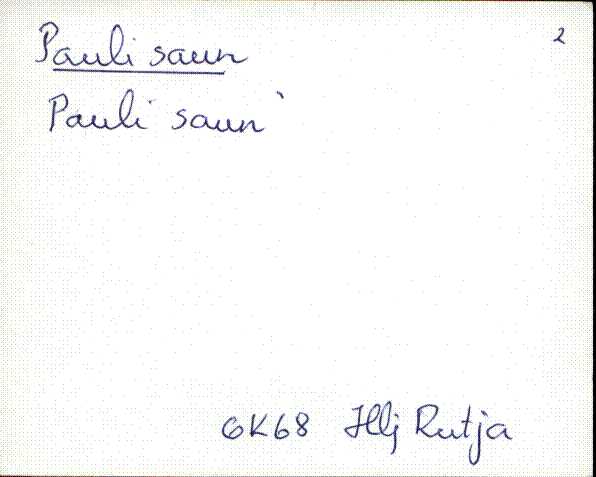 2
Pauli saun
Pauli saun`
GK68 Hlj Rutja